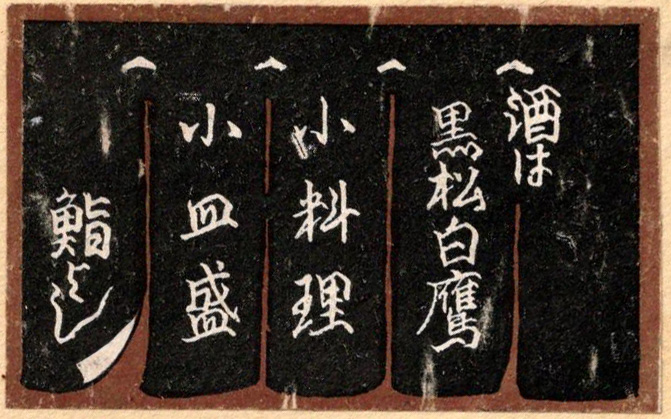 酒は
黒松白鷹
小料理
小皿盛
鮨よし